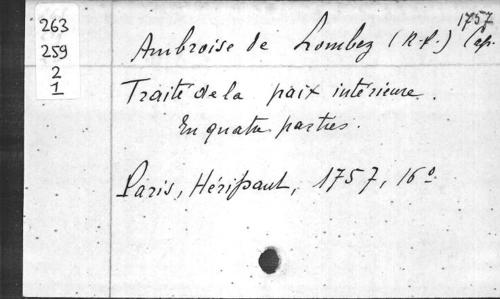 263
259
2
1
1757
Ambroise de Lombez (R.P.) Cap.
Traité de la paix intérieure.
En quatre parties.
Paris, Hérissant, 1757, 16º